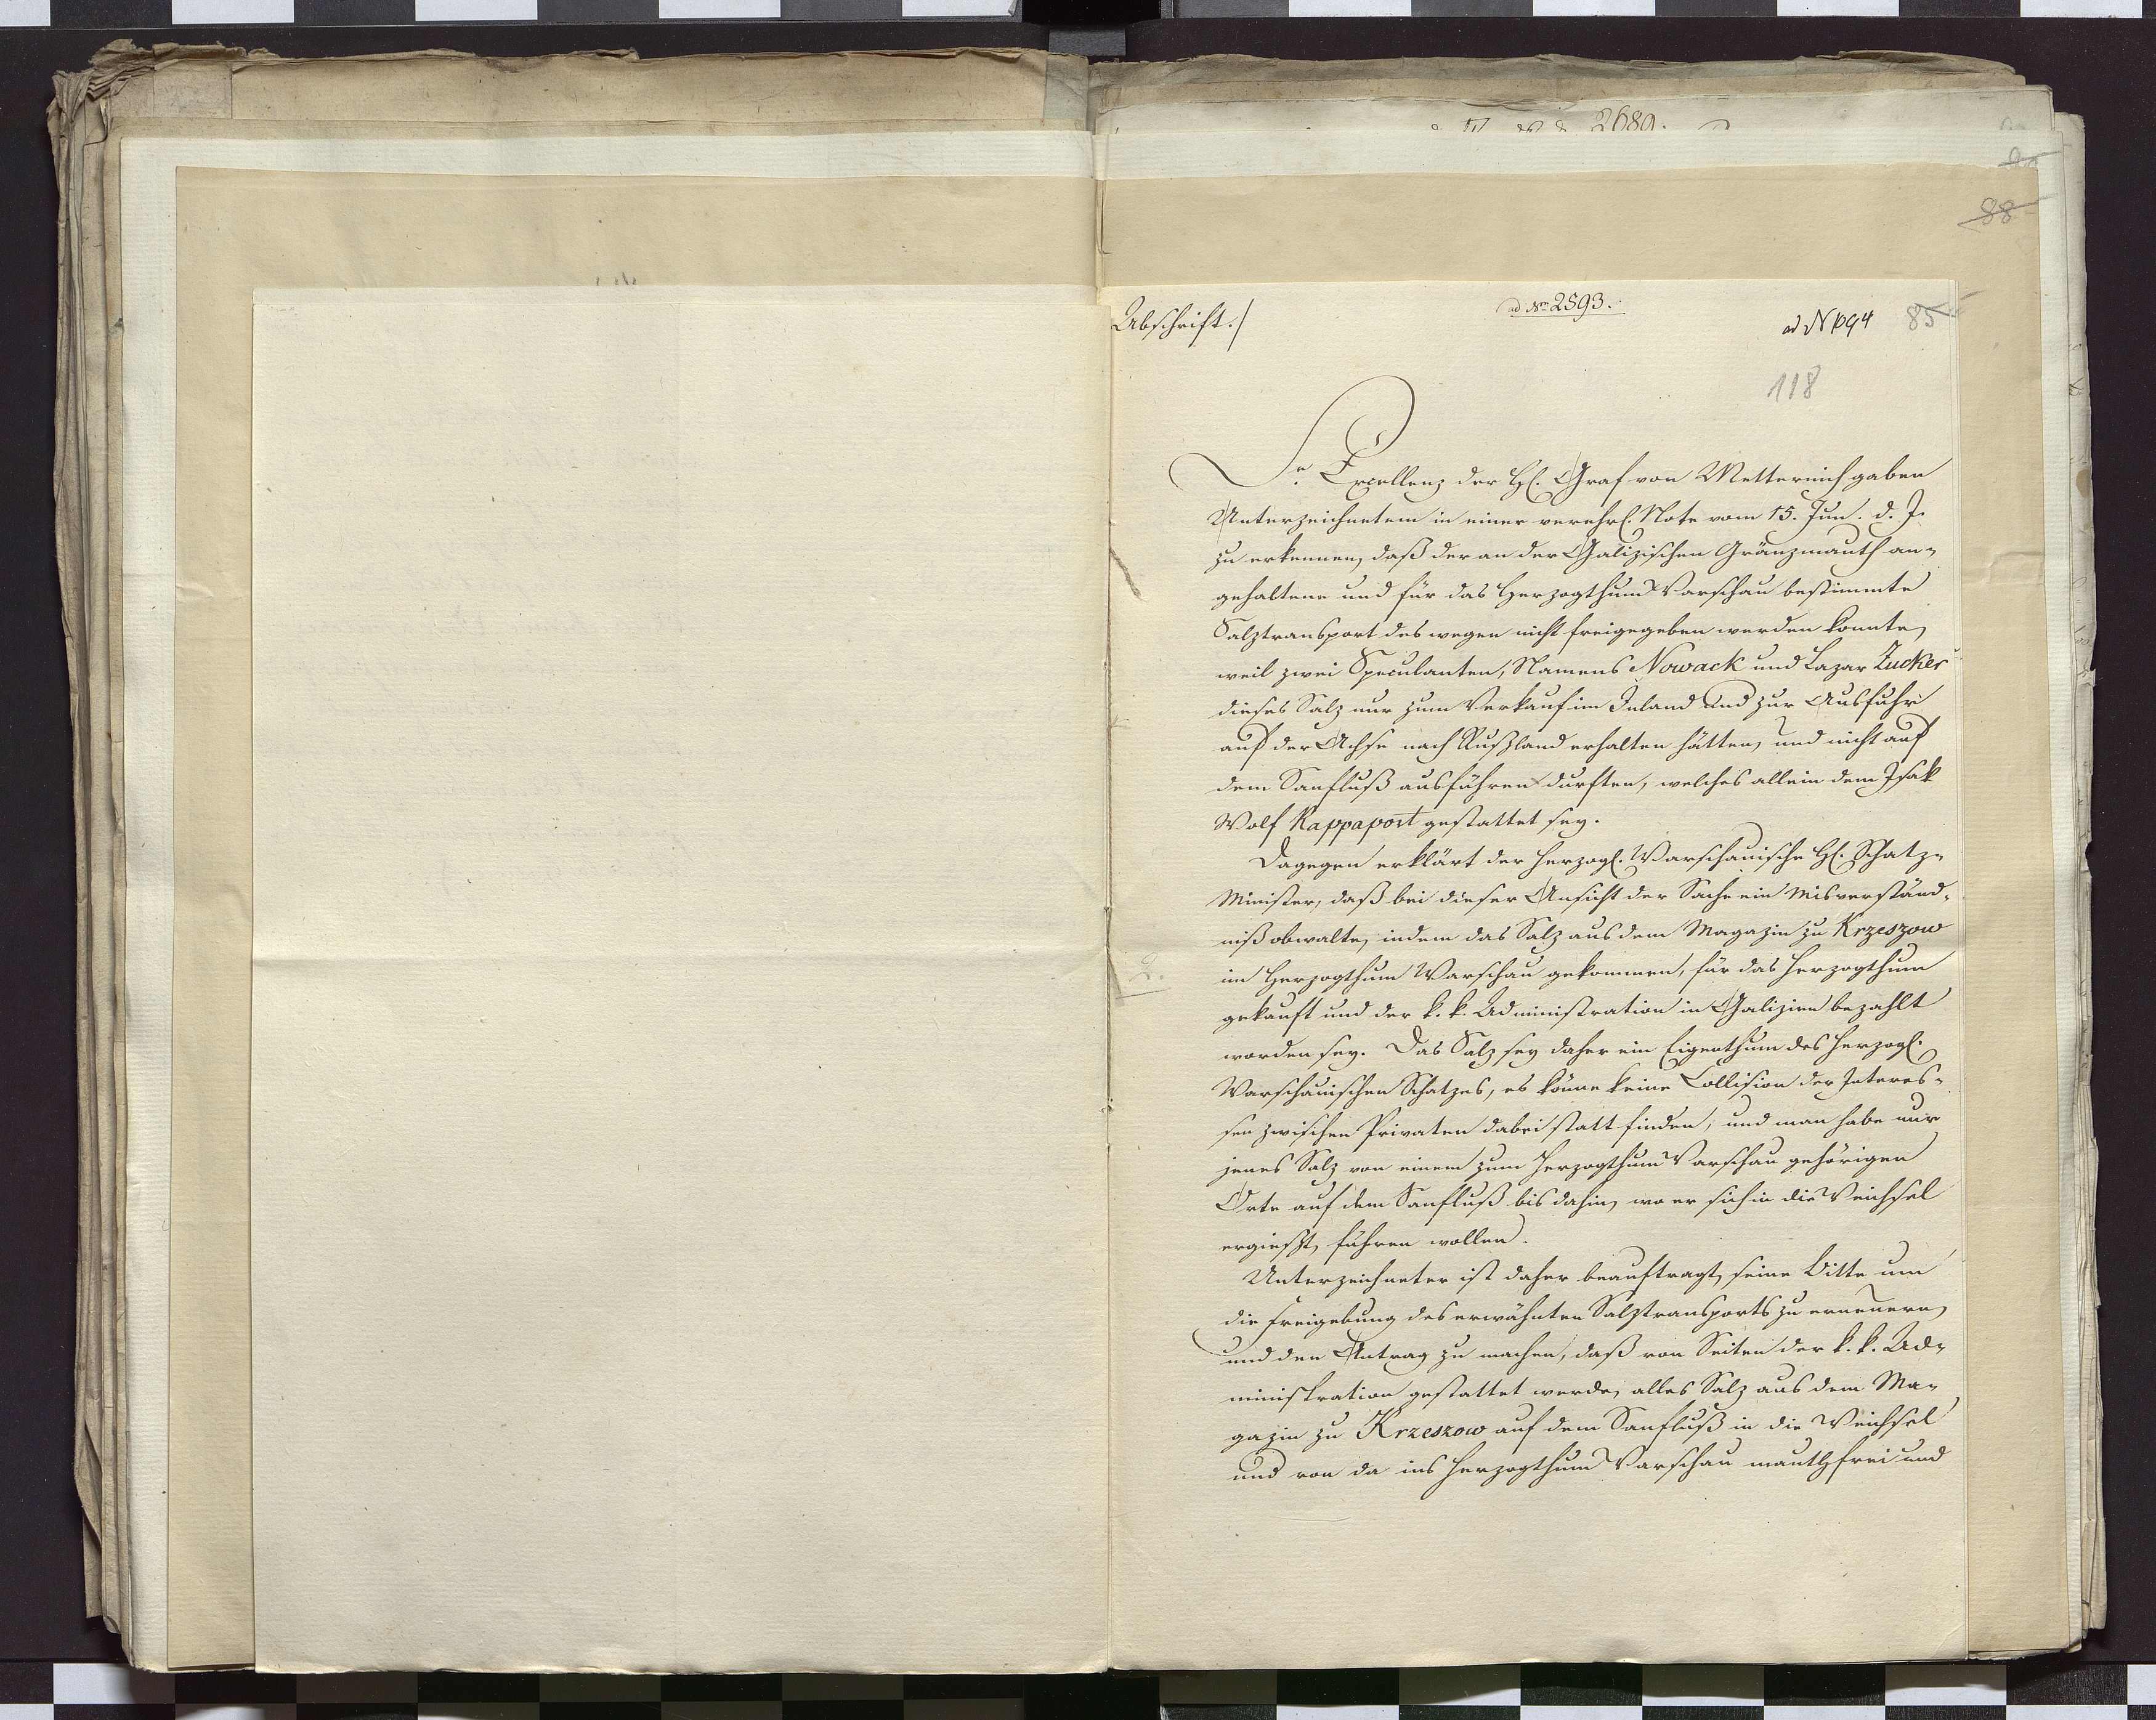 2680.
88
Abschrift./
ad Nro 2593.
ad N 1094
85
118
Sr. Excellenz der H. Graf von Metternich gaben
Unterzeichnetem in einer verehrl. Note vom 15. Jun. d. J.
zu erkennen, daß der an der Galizischen Gränzmauth an-
gehaltene und für das Herzogthum Warschau bestimmte
Salztransport des wegen nicht freigegeben werden konnte,
weil zwei Speculanten, Namens Nowack und Lazar Zucker
dieses Salz nur zum Verkauf im Inland und zur Ausfuhr
auf der Achse nach Rußland erhalten hätten, und nicht auf
dem Sanfluß ausführen durften, welches allein dem Isak
Wolf Rappaport gestattet sey.
Dagegen erklärt der Herzogl. Warschauische H. Schatz-
Minister, daß bei dieser Ansicht der Sache ein Misverständ-
niß obwalte, indem das Salz aus dem Magazin zu Krzeszow
im Herzogthum Warschau gekommen, für das Herzogthum
gekauft und der k. k. Administration in Galizien bezahlt
worden sey. Das Salz sey daher ein Eigenthum des Herzogl.
Warschauischen Schatzes, es könne keine Collision der Interes-
sen zwischen Privaten dabei statt finden, und man habe nur
jenes Salz von einem zum Herzogthum Warschau gehörigen
Orte auf dem Sanfluß bis dahin, wo er sich in die Weichsel
ergießt, führen wollen.
Unterzeichneter ist daher beauftragt, seine Bitte um
die Freigebung des erwähnten Salztransports zu erneuern,
und den Antrag zu machen, daß von Seiten der k. k. Ad-
ministration gestattet werde, alles Salz aus dem Ma-
gazin zu Krzeszow auf dem Sanfluß in die Weichsel
und von da ins Herzogthum Warschau mauthfrei und
2.